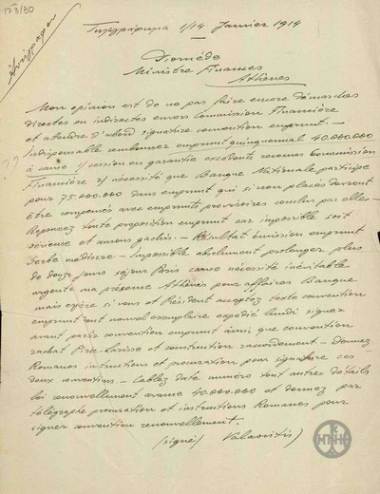 173/80
Ἀντίγραφον
Τηλεγράφημα 1/14 Janvier 1914
Diomède
Ministre Finances
Athènes
Mon opinion est de ne pas faire encore démarches
directes ou indirectes envers Commission Financière
et attendre d'abord signature convention emprunt. —
Indispensable rembourser emprunt quinquennal 40.000.000
à cause 1/ cession en garantie excédents revenus Commission
Financière 2/ nécessité que Banque Nationale participe
pour 75.000.000 dans emprunt qui si non placés devront
être compensés avec emprunts provisoires conclus par elle. —
Repoussez toute proposition emprunt car impossible soit
sérieuse et aurons gachis. — Résultat émission emprunt
Serbe médiocre. — Impossible absolument prolonger plus
de douze jours séjour Paris cause nécessité inévitable
urgente ma présence Athènes pour affaires Banque
mais espère si vous et Président acceptez texte convention
emprunt dont nouvel exemplaire expédié lundi signer
avant partir convention emprunt ainsi que convention
rachat Pirée-Larisse et construction raccordement. — Donnez
Romanos instructions et procuration pour signature ces
deux conventions. — Cablez date numéro tout autres détails
loi renouvellement avance 40.000.000 et donnez par
télégraphe procuration et instructions Romanos pour
signer convention renouvellement.
(signé) Valaoritis